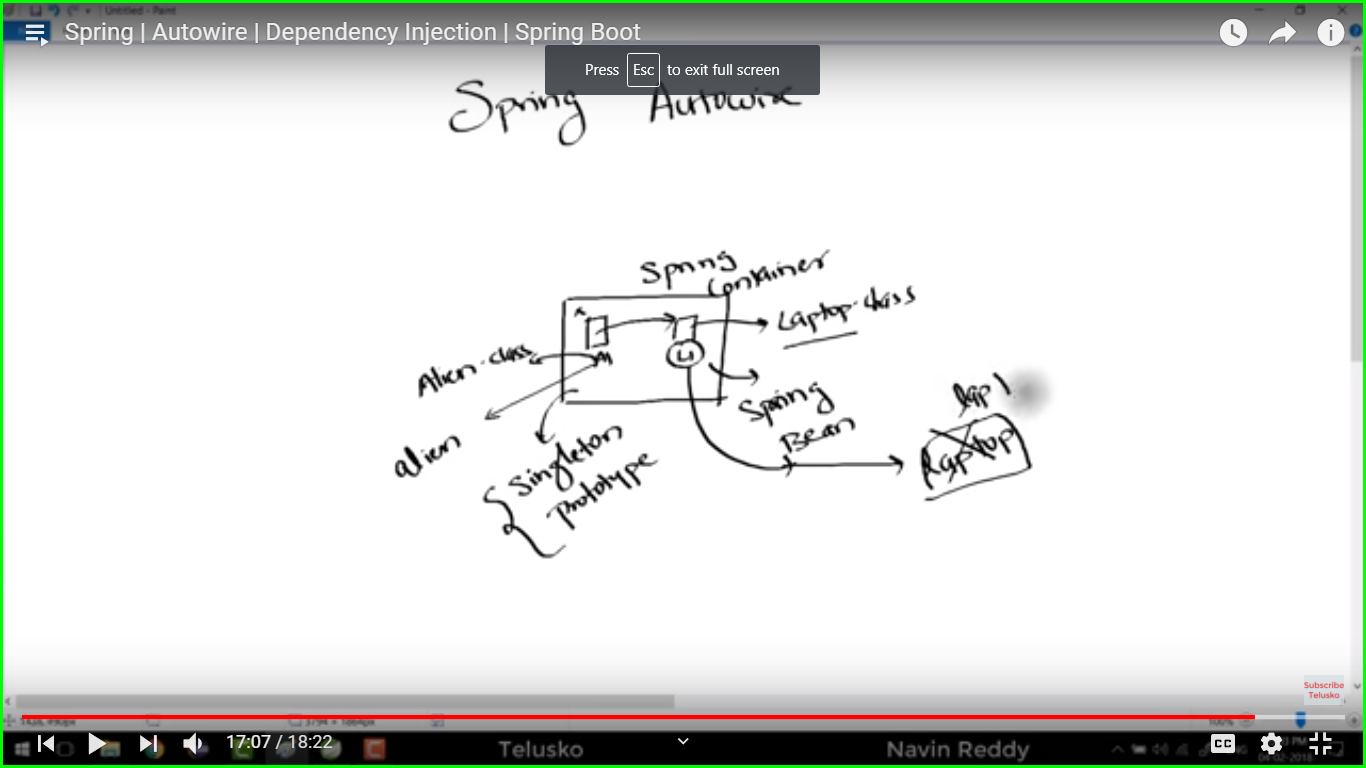 Untitled - Paint
Spring | Autowire | Dependency Injection | Spring Boot
Press Esc to exit full screen
Spring Autowire
Spring
Container
Laptop-class
Alien-class
L1
lap1
Spring
Bean
Laptop
alien
Singleton
prototype
Subscribe
Telusko
100%
17:07 / 18:22
Telusko
Navin Reddy
CC
04-02-2018